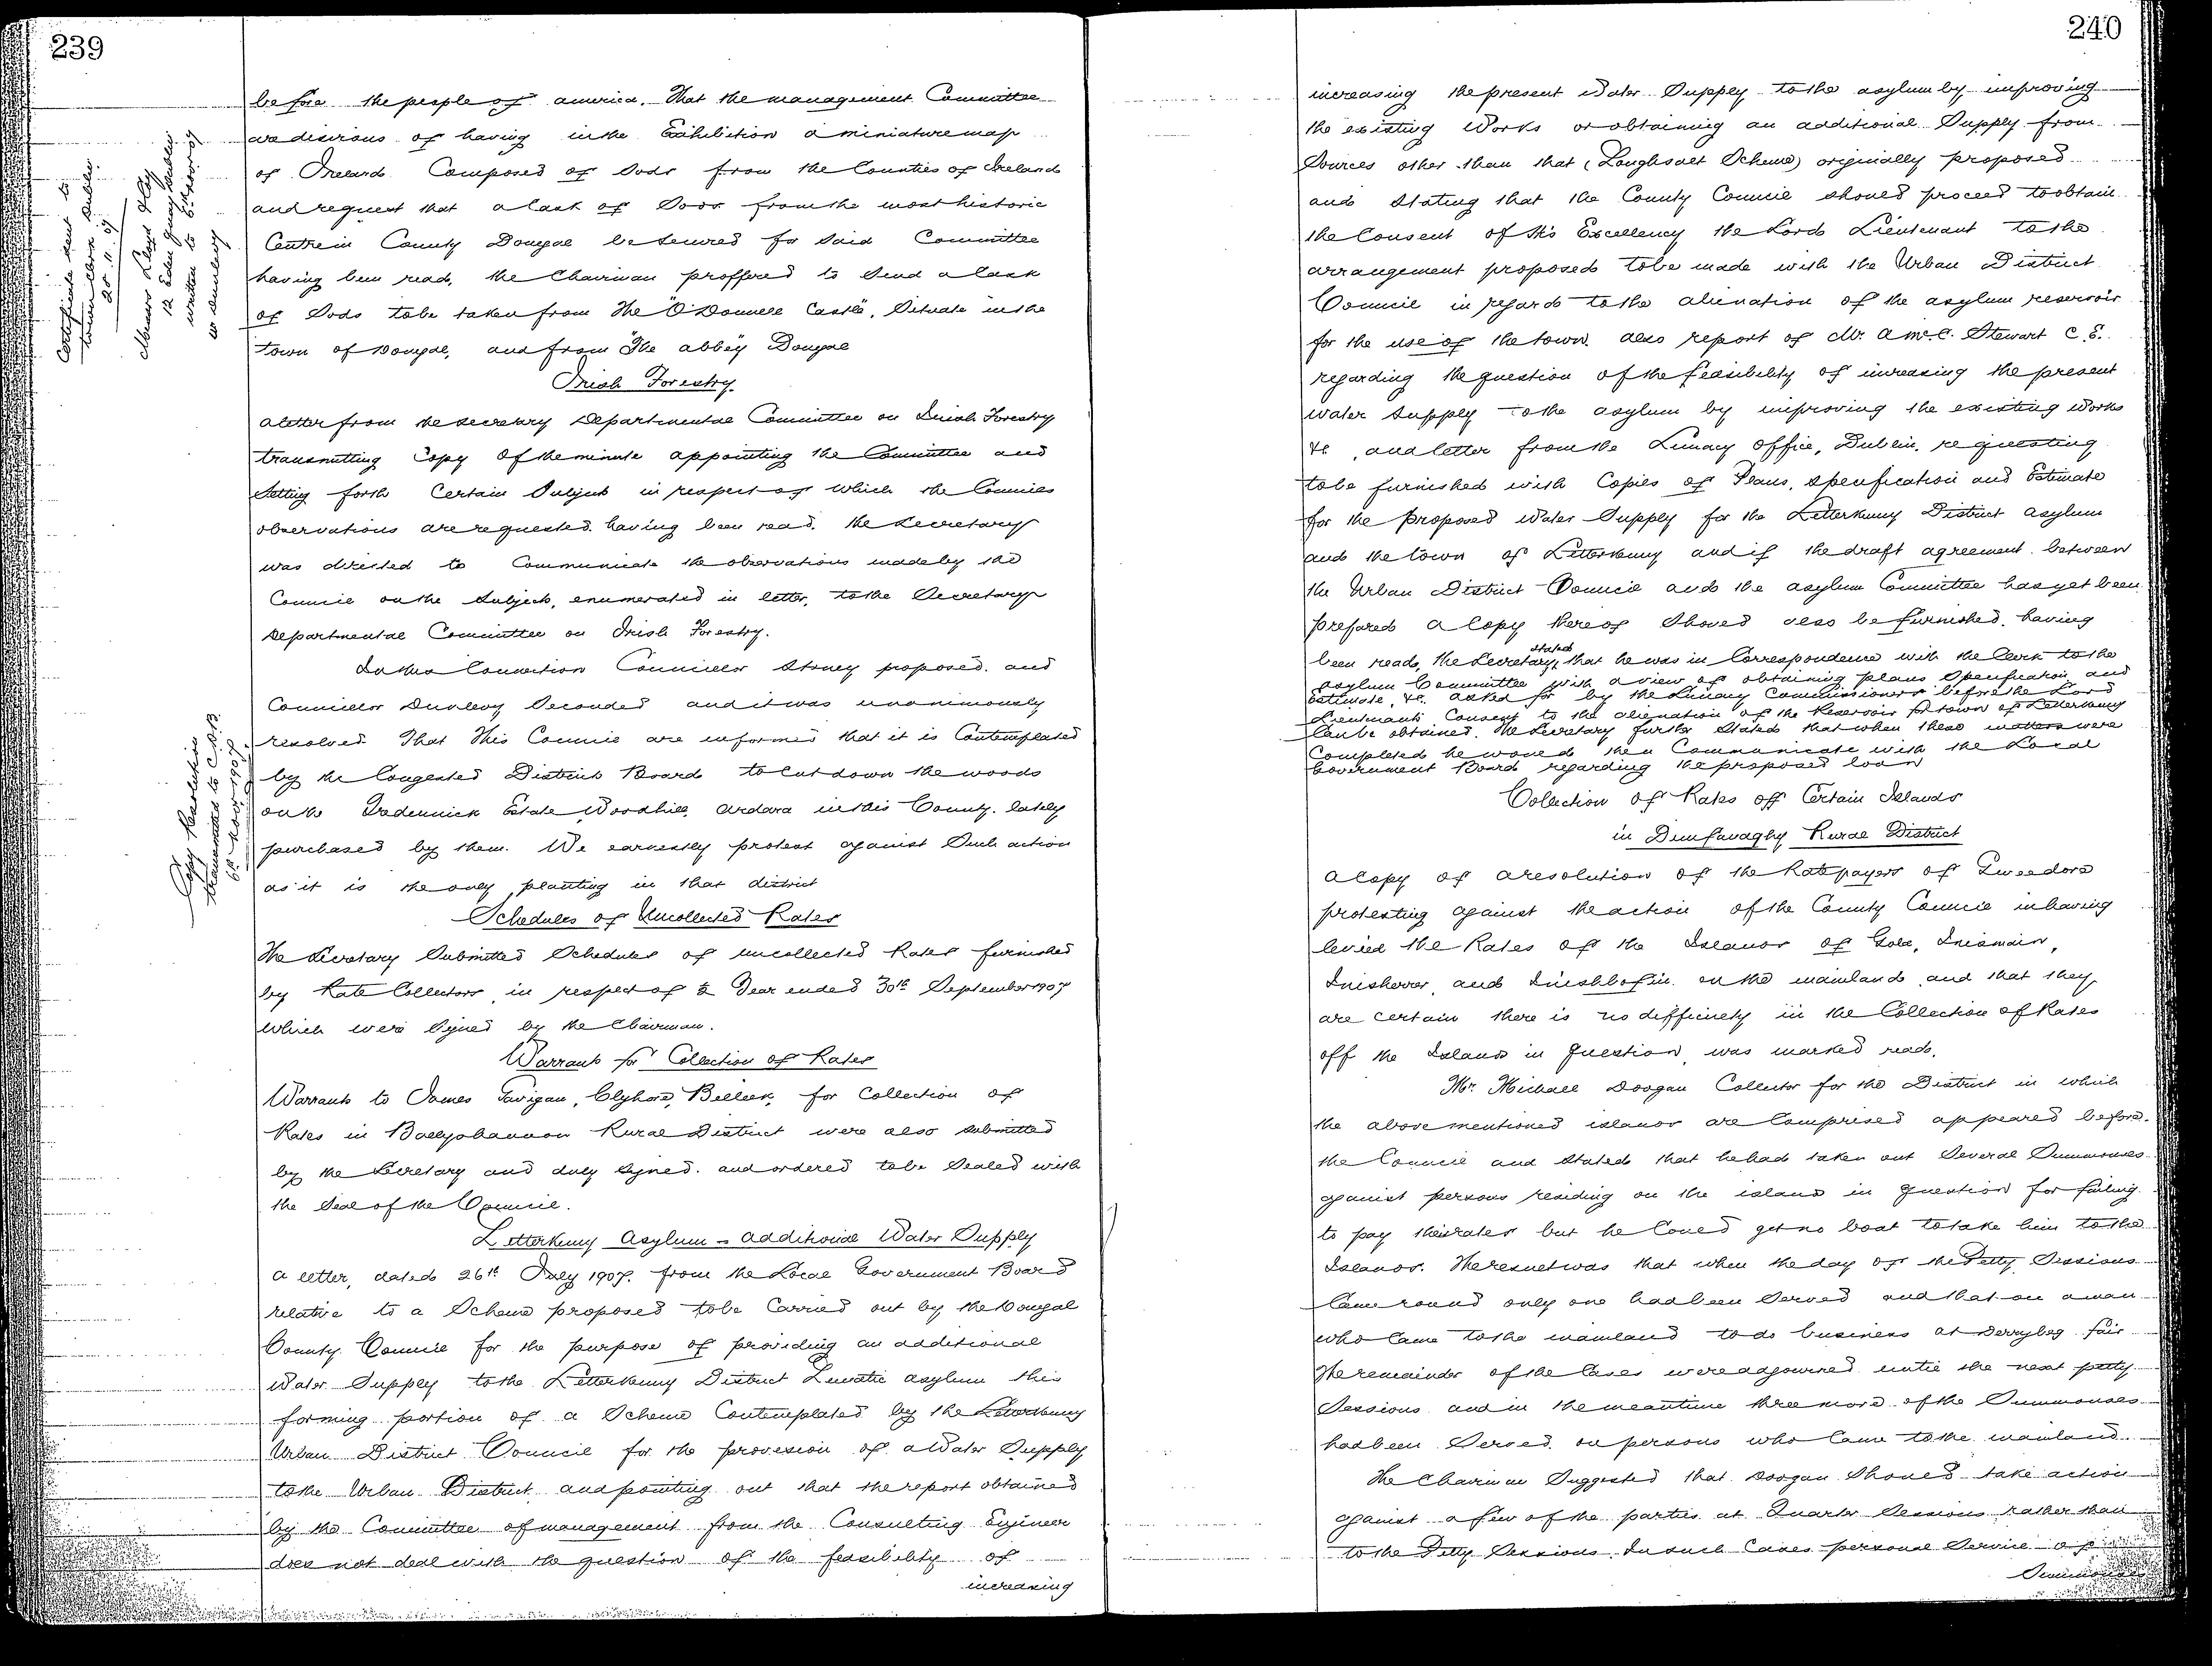 239
before the people of america. That the management Committee
are desirous of having in the Exhibition a miniature map
of Ireland Composed of Sods from the Counties of Ireland
and request that a cask of Sods from the most historic
Centre in County Donegal be secured for Said Committee
having been read, the Chairman proffered to Send a cask
of Sods to be taken from The "O'Donnell Castle", Situate in the
town of Donegal, and from "The abbey" Donegal
Irish Forestry
a letter from the secretary Departmental Committee on Irish Forestry
transmitting Copy of the minute appointing the Committee and
Setting forth Certain Subjects in respect of which the Councils
observations are requested having been read. the Secretary
was directed to Communicate the observations made by the
Council on the Subjects, enumerated in letter, to the Secretary
Departmental Committee on Irish Forestry.
In this Connection Councillor Stoney proposed. and
Councillor Dunlevy Seconded and it was unanimously
resolved That This Council are informed that it is Contemplated
by the Congested Districts Board to Cut down the woods
on the Estate Woodhill, Ardara in this County. lately
purchased by them. We earnestly protest against Such action
as it is the only planting in that district
Schedules of Uncollected Rates
The Secretary Submitted Schedules of uncollected Rates furnished
by Rate Collectors in respect of ½ Year ended 30th September 1907
which were Signed by the Chairman.
Warrants for Collection of Rates
Warrants to James Gavigan, Clyhore, Belleek, for Collection of
Rates in Ballyshannon Rural District were also submitted
by the Secretary and duly signed. and ordered to be Sealed with
the Seal of the Council.
Letterkenny Asylum - additional Water Supply
a letter, dated 26th July 1907. from the Local Government Board
relative to a Scheme proposed to be Carried out by the Donegal
County Council for the purpose of providing an additional
Water Supply to the Letterkenny District Lunatic asylum this
forming portion of a Scheme Contemplated by the Letterkenny
Urban District Council for the provision of a Water Supply
to the Urban District, and pointing out that the report obtained
by the Committee of management from the Consulting Engineer
does not deal with the question of the feasibility of
increasing
Certificate sent to
Dublin.
20.11.07
Messrs Lloyd
12 Eden Quay Dublin
written to 6th Nov 07
Copy Resolution
transmitted to C.D.B.
6th Nov 1907
240
increasing the present Water Supply to the asylum by improving
the existing Works or obtaining an additional Supply from
Sources other than that (Loughsalt Scheme) originally proposed
and Stating that the County Council should proceed to obtain
the Consent of His Excellency the Lord Lieutenant to the
arrangement proposed to be made with the Urban District
Council in regard to the alienation of the asylum reservoir
for the use of the town. also report of Mr. A McC. Stewart C.E.
regarding the question of the feasibility of increasing the present
water supply to the asylum by improving the existing Works
&c., and letter from the Lunacy office, Dublin, requesting
to be furnished with Copies of Plans, Specification and Estimate
for the proposed Water Supply for the Letterkenny District asylum
and the town of Letterkenny and if the draft agreement between
the Urban District Council and the asylum Committee has yet been
prepared a Copy thereof Should also be furnished. having
been read, the Secretary stated that he was in Correspondence with the Clerk to the
asylum Committee with a view of obtaining plans Specification and
Estimate, &c. asked for by the Lunacy Commissioners before the Lord
Lieutenants Consent to the alienation of the Reservoir for town of Letterkenny
Can be obtained. The Secretary further Stated that when these matters were
Completed he would then Communicate with the Local
Government Board regarding the proposed loan
Collection of Rates off Certain Islands
in Dunfanaghy Rural District
a Copy of a resolution of the Ratepayers of Gweedore
protesting against the action of the County Council in having
levied the Rates of the Islands of Gola, Inismain,
Inisherrer, and Inishbofin on the mainland and that they
are certain there is no difficulty in the Collection of Rates
off the Islands in question, was marked read.
Mr. Michael Doogan Collector for the District in which
the above mentioned islands are Comprised appeared before
the Council and Stated that he had taken out Several Summonses
against persons residing on the island in question for failing
to pay their rates but he Could get no boat to take him to the
Islands. The result was that when the day of the Petty Sessions
Came round only one had been Served and that on a man
who Came to the mainland to do business at Derrybeg fair
The remainder of the Cases were adjourned until the next petty
Sessions and in the meantime three more of the Summonses
had been Served on persons who Came to the mainland.
The Chairman Suggested that Doogan Should take action
against a few of the parties at Quarter Sessions rather than
to the Petty Sessions. In such Cases personal Service of
Summonses